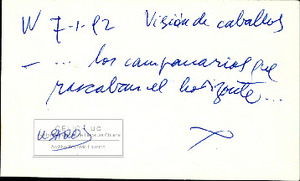 W 7-1-92 Visión de caballos
— ... los campanarios que
rascaban el horizonte...
USADO